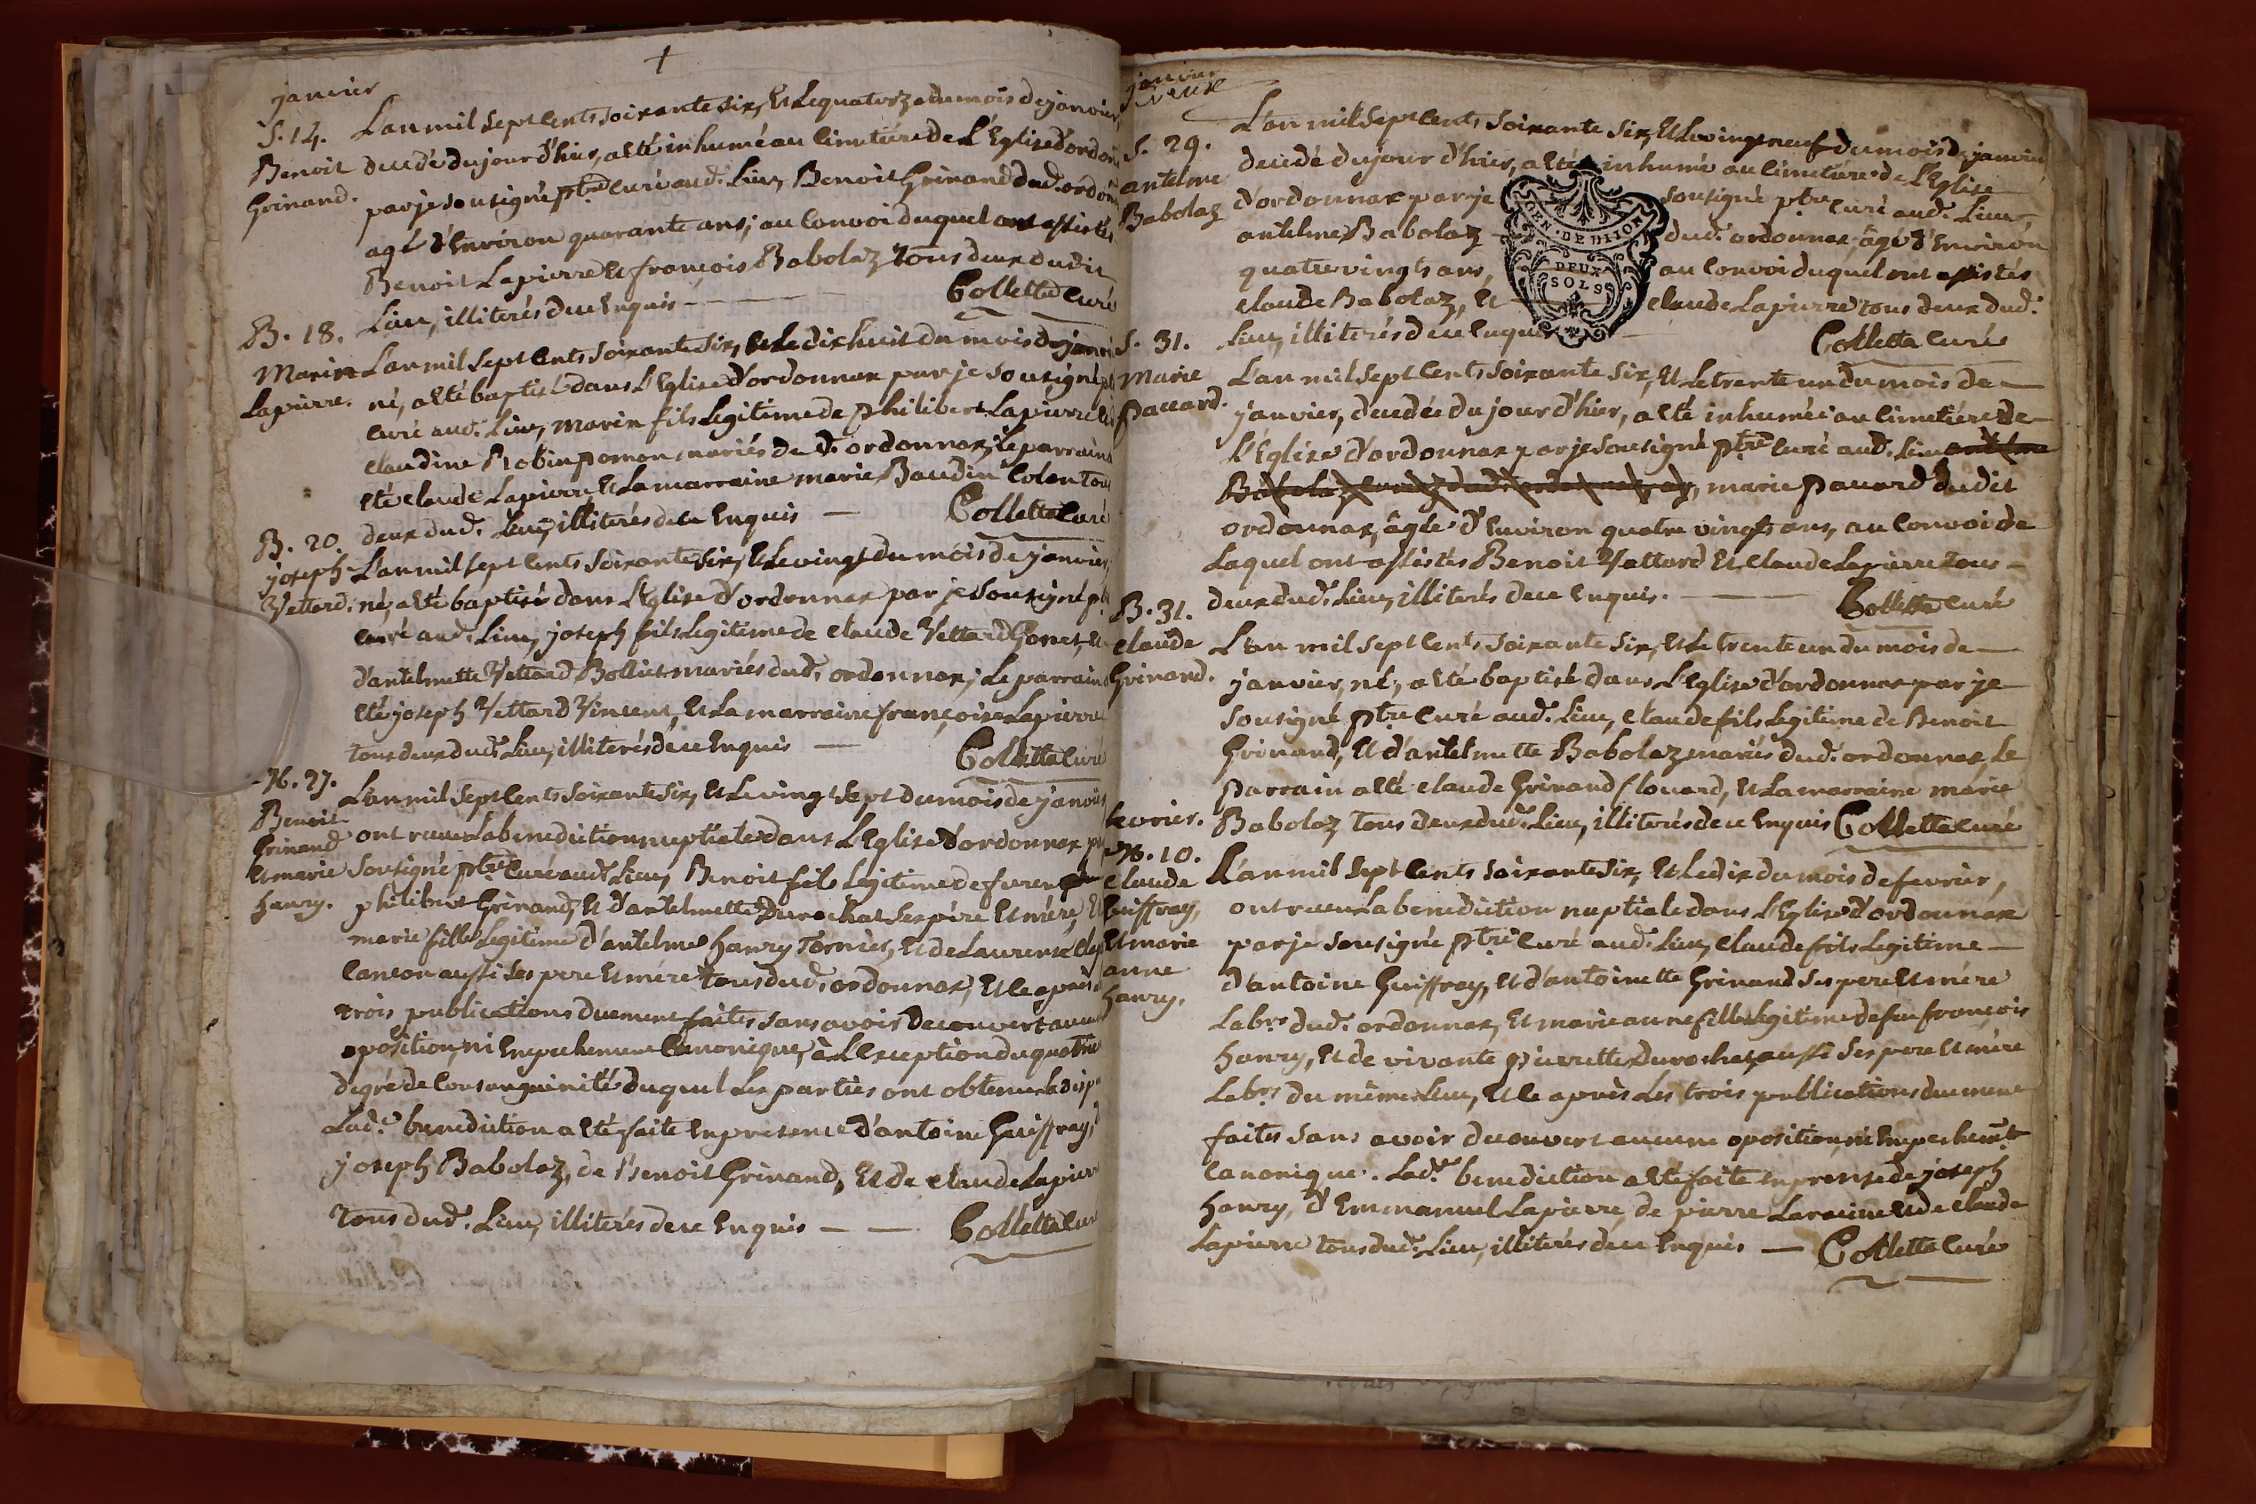 janvier
S. 14.
Benoit
Grinand.
L'an mil sept cents soixante six, et le quatorze du mois de janvier,
decedé du jour d'hier, a été inhumé au cimetiére de L'Eglise d'ordonn
par je sousigné ptre curé aud. Lieu, Benoit Grinand dud. ordonn
agé d'environ quarante ans; au convoi duquel ont assistés
Benoit Lapierre et françois Babolaz tous deux dudit
Lieu, illiterés de ce enquis — Colletta curé
B. 18.
Marin
Lapierre.
L'an mil sept cents soixante six, et le dix huit du mois de janvi
né, a été baptisé dans L'Eglise d'ordonnax par je sousigné pt
curé aud. Lieu, marin fils Legitime de philibert Lapierre et
claudine Robin pomon mariés dud. ordonnax; Le parrain a
été claude Lapierre, et La marraine marie Baudin Colon tous
deux dud. Lieu, illiterés de ce enquis — Colletta curé
B. 20.
joseph
Vettard.
L'an mil sept cents soixante six, et Le vingt du mois de janvier,
né, a été baptisé dans L'Eglise d'ordonnax par je sousigné pt
curé aud. Lieu, joseph fils Legitime de claude Vettard Gonet, et
d'antelmette Vettard Bolliet mariés dud. ordonnax; Le parrain a
été joseph Vettard Vincent, et La marraine françoise Lapierre
tous deux dud. Lieu, illiterés de ce enquis — Colletta curé
N. 27.
Benoit
Grinand
et marie
hanry.
L'an mil sept cents soixante six, et Le vingt sept du mois de janvier
ont receu La benediction nuptiale dans L'Eglise d'ordonnax p
sousigné ptre curé aud. Lieu, Benoit fils Legitime de furent
philibert Grinand, et d'antelmette Durochat ses pére et mére, et
marie fille Legitime d'antelme hanry Torniér, et de Laurence
cancon aussi ses pere et mére tous dud. ordonnax, et ce après
trois publications duement faites sans avoir decouvert aucune
oposition, ni empechement canonique, à L'exception du quatrie
degré de consanguinité duquel Les parties ont obtenu La disp
Lad.e benediction a été faite en presence d'antoine Guiffray, d
joseph Babolaz, de Benoit Grinand, et de claude Lapierre
tous dud. Lieu, illiterés de ce enquis — — Colletta curé
janvier
S. 29.
antelme
Babolaz
L'an mil sept cents soixante six, et Le vingt neuf du mois de janvier
decedé du jour d'hier, a été inhumé au cimetiére de L'Eglise
d'ordonnax par je sousigné ptre curé aud. Lieu,
antelme Babolaz dud. ordonnax, âgé d'environ
quatre vingts ans, au convoi duquel ont assistés
claude Babolaz, et claude Lapierre tous deux dud.
Lieu, illiterés de ce enquis — Colletta curé
GEN. DE DIJON
DEUX
SOLS
S. 31.
Marie
pauard.
L'an mil sept cents soixante six, et Le trente un du mois de —
janvier, decedée du jour d'hier, a été inhumée au cimetiére de
L'Eglise d'ordonnax par je sousigné ptre curé aud. Lieu antelme
Babolaz, marie pauard dudit
ordonnax, âgée d'environ quatre vingts ans, au convoi de
Laquel ont assistés Benoit Vettard et claude Lapierre tous —
deux dud. Lieu, illiterés de ce enquis. — Colletta curé
B. 31.
claude
Grinand.
L'an mil sept cents soixante six, et Le trente un du mois de —
janvier, né, a été baptisé dans L'Eglise d'ordonnax par je
sousigné ptre curé aud. Lieu, claude fils Legitime de Benoit
Grinand, et d'antelmette Babolaz mariés dud. ordonnax, Le
parrain a été claude Grinand Clouard, et La marraine marie
Babolaz tous deux dud. Lieu, illiterés de ce enquis Colletta curé
fevrier.
N. 10.
claude
Guiffray,
et marie
anne
hanry.
L'an mil sept cents soixante six, et Le dix du mois de fevrier,
ont receu La benediction nuptiale dans L'Eglise d'ordonnax
par je sousigné ptre curé aud. Lieu, claude fils Legitime —
d'antoine Guiffray, et d'antoinette Grinand ses pere et mére
Labrs dud. ordonnax, et marie anne fille Legitime de feu françois
hanry, et de vivante pierrette Durochat aussi ses pere et mére
Labrs du même Lieu, et ce après Les trois publications duement
faites sans avoir decouvert aucune oposition, ni empechemt
canonique. Lad.e benediction a été faite en presence de joseph
hanry, d'Emmanuel Lapierre, de pierre Laracine et de claude
Lapierre tous dud. Lieu, illiterés de ce enquis — Colletta curé